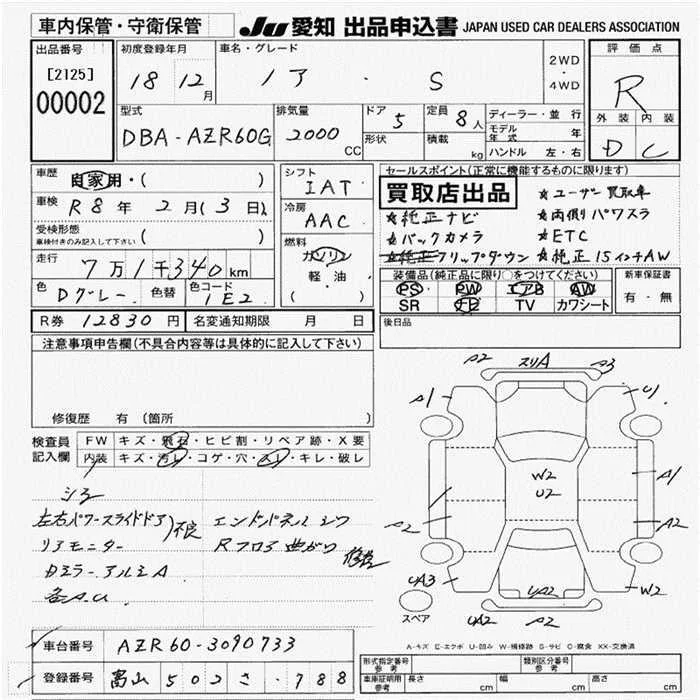 車内保管・守衛保管 JU 愛知 出品申込書 JAPAN USED CAR DEALERS ASSOCIATION
出品番号 初度登録年月 車名・グレード 評価点
[2125] 18 12月 ノア・S 2WD・4WD R
00002
型式 排気量 ドア 定員 ディーラー・並行 外装 内装
DBA-AZR60G 2000 CC 5 8人 モデル年式 年 D C
形状 積載 kg ハンドル 左・右
車歴 自家用・( ) シフト IAT セールスポイント(正常に機能するものに限ります)
車検 R8年2月(3日) 冷房 AAC 買取店出品 ☆ユーザー買取車
受検形態 ☆純正ナビ ☆両側パワスラ
車検付きのみ記入して下さい ( ) 燃料 ☆バックカメラ ☆ETC
走行 7万1千340km ガソリン ☆フリップダウン ☆純正15インチAW
軽・油 ( ) 装備品(純正品に限り○をつけてください) 新車保証書
色 Dグレー 色替 色コード 1E2 PS PW エアB AW 有・無
SR ナビ TV カワシート
R券 12830円 名変通知期限 月 日 後日品
注意事項申告欄(不具合内容等は具体的に記入して下さい)
A2 スリA A3
A1 U1
修復歴 有 (箇所 )
検査員記入欄 FW キズ・飛石・ヒビ割・リペア跡・X要
内装 キズ・汚レ・コゲ・穴・スレ・キレ・破レ
W2 A1
U2
シミ
左右パワースライドドア)不良 エンドパネルシワ A2 A2
リアモニター Rフロア曲がり 修老
Dミラー、アルミA UA3 UA2 W2
各A.U スペア UA2 A2
A-キズ E-エクボ U-凹み W-補修跡 S-サビ C-腐食 XX-交換済
車台番号 AZR60-3090733
登録番号 富山 502 さ ・788
形式指定番号参考 類別区分番号参考
車庫証明用参考 長さ cm 幅 cm 高さ cm